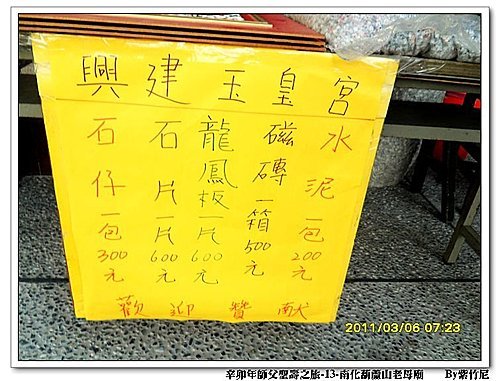 興建玉皇宮
水泥一包200元
磁磚一箱500元
龍鳳板一片600元
石片一片600元
石仔一包300元
歡迎贊献
2011/03/06 07:23
辛卯年師父聖壽之旅-13-南化葫蘆山老母廟 By紫竹尼